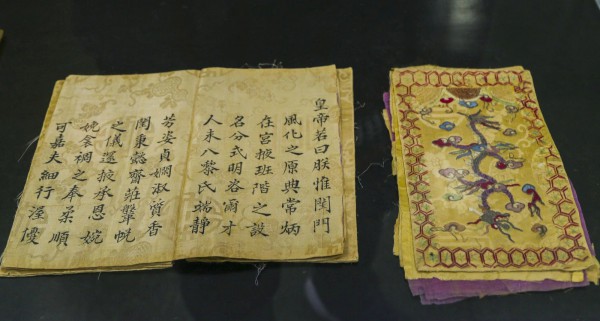 皇帝若曰朕惟閨門
風化之原典常炳
在宮掖班階之設
名分式明咨爾才
人未八黎氏端靜
芳姿貞嫻淑質香
閨秉懿齋莊鞶帨
之儀邇掖承恩婉
娩衾裯之奉柔順
可嘉夫細行優